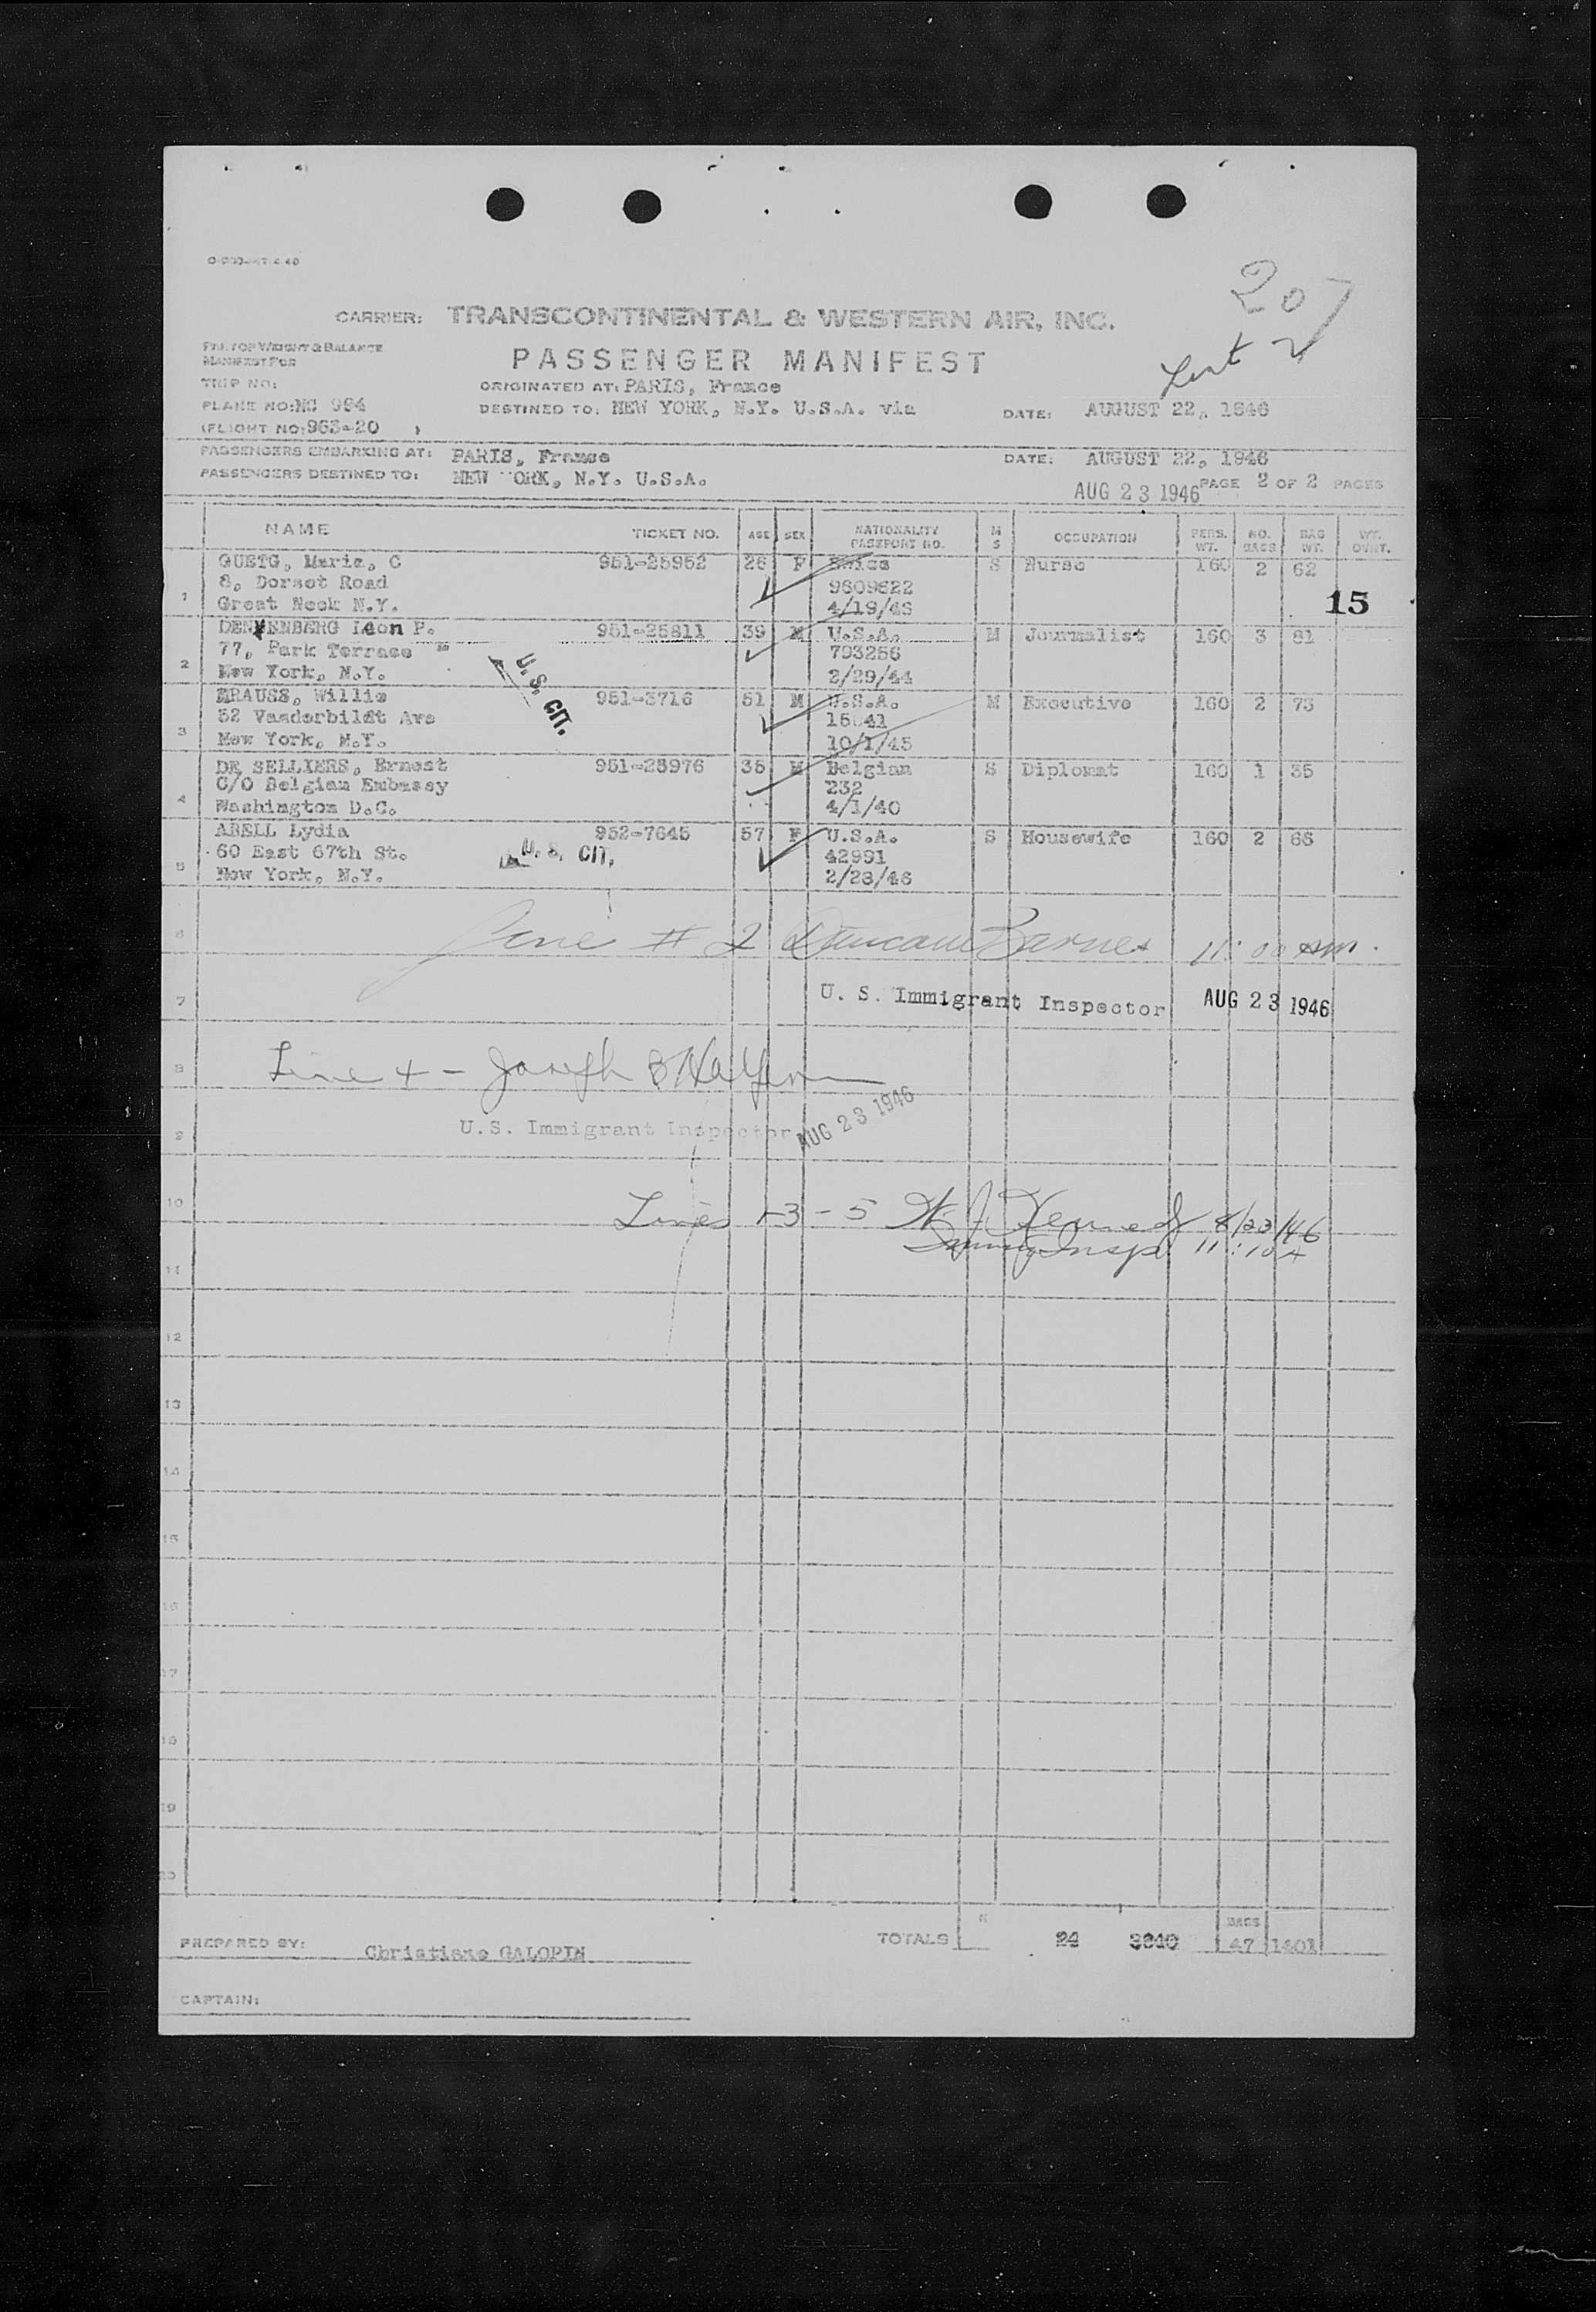 207
CARRIER: TRANSCONTINENTAL & WESTERN AIR, INC.
PASSENGER MANIFEST
MANIFEST FOR
TRIP NO:
ORIGINATED AT: PARIS, France
PLANE NO: NC 994
DESTINED TO: NEW YORK, N.Y. U.S.A. via
DATE: AUGUST 22, 1946
(FLIGHT NO: 963-20 )
PASSENGERS EMBARKING AT: PARIS, France
DATE: AUGUST 22, 1946
PASSENGERS DESTINED TO: NEW ORK, N.Y. U.S.A.
AUG 23 1946 PAGE 2 OF 2 PAGES
NAME TICKET NO. AGE SEX NATIONALITY PASSPORT NO. M S OCCUPATION PERS. WT. NO. BAGS BAG WT. WT. OVNT.
QUETG, Maria, C 951-25952 26 F Swiss S Nurse 160 2 62
8, Dorset Road 9609622
1 Great Neck N.Y. 4/19/46 15
DENNENBERG Leon P. 951-25811 39 M U.S.A. M Journalist 160 3 81
77, Park Terrace 793256
2 New York, N.Y. 2/29/44
U.S. CIT.
KRAUSS, Willis 951-3716 51 M U.S.A. M Executive 160 2 73
52 Vanderbildt Ave
3 New York, N.Y. 10/1/45
DE SELLIERS, Ernest 951-25976 35 M Belgian S Diplomat 160 1 35
C/O Belgian Embassy 232
4 Washington D.C. 4/1/40
ABELL Lydia 952-7645 57 F U.S.A. S Housewife 160 2 66
60 East 67th St. U. S. CIT. 42991
5 New York, N.Y. 2/28/46
6 Line # 2 Duncan Barnes 11:00 am.
7 U. S. Immigrant Inspector AUG 23 1946
8 Line 4 - Joseph B Halpern
9 U.S. Immigrant Inspector AUG 23 1946
10 Lines 1-3-5 W J Kennedy 8/23/46
Immig Insp 11:10 A
11
12
13
14
15
16
17
18
19
20
PREPARED BY: Christiane GALOPIN
TOTALS 24 3840 BAGS 47 1401
CAPTAIN: